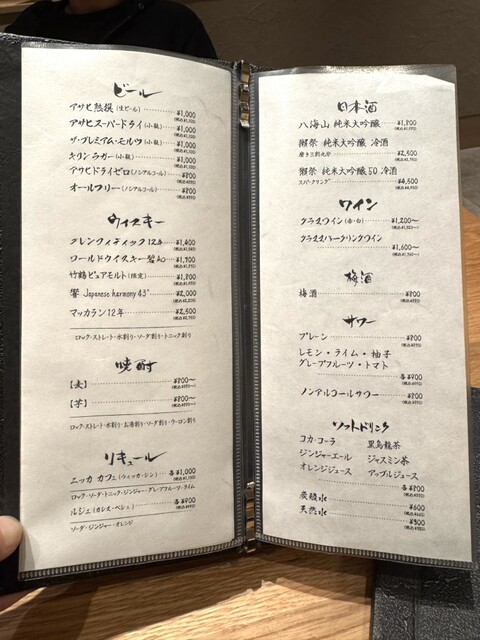 ビール
アサヒ熟撰(生ビール) ¥1,000
(税込¥1,100)
アサヒスーパードライ(小瓶) ¥1,000
(税込¥1,100)
ザ・プレミアム・モルツ(小瓶) ¥1,000
(税込¥1,100)
キリンラガー(小瓶) ¥1,000
(税込¥1,100)
アサヒドライゼロ(ノンアルコール) ¥800
(税込¥880)
オールフリー(ノンアルコール) ¥800
(税込¥880)
ウイスキー
グレンフィディック12年 ¥1,400
ワールドウイスキー碧AO ¥1,700
竹鶴ピュアモルト(限定) ¥1,800
響 Japanese harmony 43° ¥2,000
マッカラン12年 ¥2,300
ロック・ストレート・水割り・ソーダ割り・トニック割り
焼酎
【麦】 ¥800〜
(税込¥880)〜
【芋】 ¥800〜
(税込¥880)〜
ロック・ストレート・水割り・お湯割り・ソーダ割り・ウーロン割り
リキュール
ニッカ カフェ(ウォッカ・ジン) 各¥1,000
(税込¥1,100)
ロック・ソーダ・トニック・ジンジャー・グレープフルーツ・ライム
ルジェ(カシス・ペシェ) 各¥900
(税込¥990)
ソーダ・ジンジャー・オレンジ
日本酒
八海山 純米大吟醸 ¥1,800
獺祭 純米大吟醸 冷酒
磨き三割九分 ¥2,300
獺祭 純米大吟醸50 冷酒
スパークリング ¥4,500
ワイン
グラスワイン(赤・白) ¥1,200〜
グラススパークリングワイン
¥1,600〜
梅酒
梅酒 ¥800
(税込¥880)
サワー
プレーン ¥800
(税込¥880)
レモン・ライム・柚子
グレープフルーツ・トマト
各¥900
(税込¥990)
ノンアルコールサワー ¥800
(税込¥880)
ソフトドリンク
コカ・コーラ 黒烏龍茶
ジンジャーエール ジャスミン茶
オレンジジュース アップルジュース
各¥800
(税込¥880)
炭酸水 ¥600
(税込¥660)
天然水 ¥500
(税込¥550)